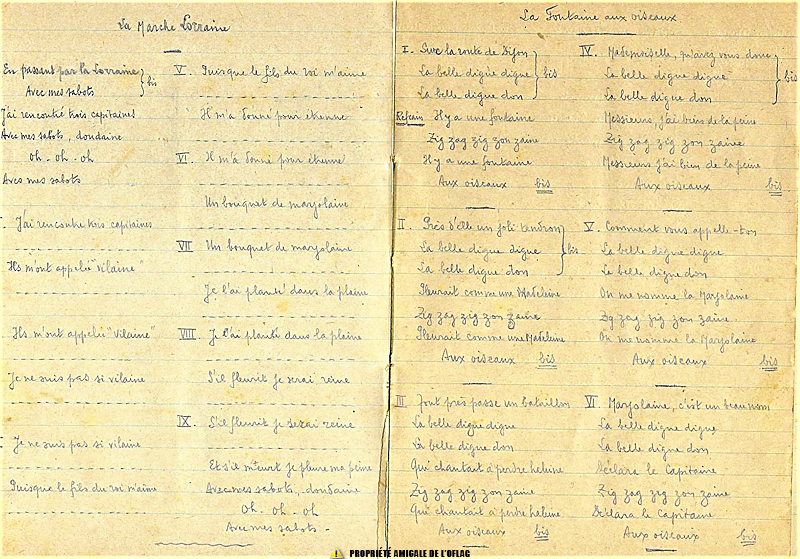 La Marche Lorraine
En passant par la Lorraine } bis
Avec mes sabots
J'ai rencontré trois capitaines
Avec mes sabots, dondaine
Oh - Oh - Oh
Avec mes sabots
J'ai rencontré trois capitaines
Ils m'ont appelé "Vilaine"
Ils m'ont appelé "Vilaine"
Je ne suis pas si vilaine
Je ne suis pas si vilaine
Puisque le fils du roi m'aime
V. Puisque le fils du roi m'aime
Il m'a donné pour étrenne
VI. Il m'a donné pour étrenne
Un bouquet de marjolaine
VII Un bouquet de marjolaine
Je l'ai planté dans la plaine
VIII. Je l'ai planté dans la plaine
S'il fleurit je serai reine
IX. S'il fleurit je serai reine
Et s'il meurt je pleure ma peine
Avec mes sabots, dondaine
Oh - Oh - Oh
Avec mes sabots -
La Fontaine aux oiseaux
I. Sur la route de Dijon
La belle digue digue } bis
La belle digue don
Refrain Il y a une fontaine
Zig zag zig zon zaine
Il y a une fontaine
Aux oiseaux bis
II Près d'elle un joli tendron
La belle digue digue } bis
La belle digue don
Pleurait comme une Madeleine
Zig zag zig zon zaine
Pleurait comme une Madeleine
Aux oiseaux bis
III Tout près passe un bataillon
La belle digue digue
La belle digue don
Qui chantait à perdre haleine
Zig zag zig zon zaine
Qui chantait à perdre haleine
Aux oiseaux bis
IV. Mademoiselle, qu'avez vous donc
La belle digue digue } bis
La belle digue don
Messieurs, j'ai bien de la peine
Zig zag zig zon zaine
Messieurs j'ai bien de la peine
Aux oiseaux bis.
V. Comment vous appelle-t-on
La belle digue digue
La belle digue don
On me nomme la Marjolaine
Zig zag zig zon zaine
On me nomme la Marjolaine
Aux oiseaux bis
VI. Marjolaine, c'est un beau nom
La belle digue digue
La belle digue don
Déclara le Capitaine
Zig zag zig zon zaine
Déclara le Capitaine
Aux oiseaux bis
PROPRIÉTÉ AMICALE DE L'OFLAG